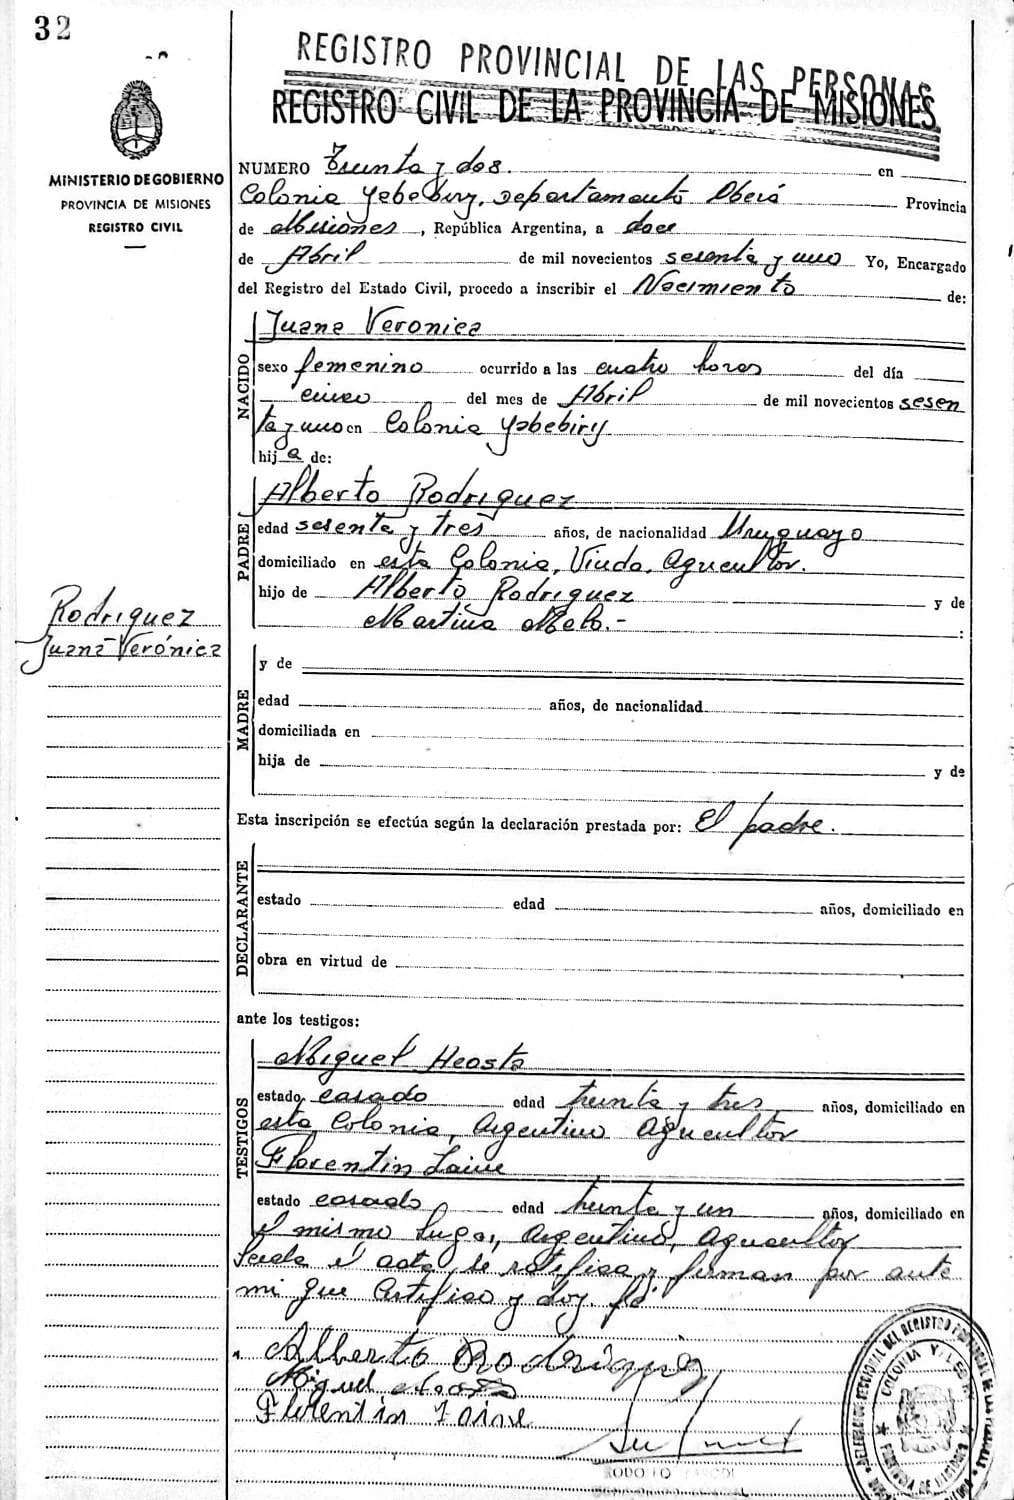 32
REGISTRO PROVINCIAL DE LAS PERSONAS
REGISTRO CIVIL DE LA PROVINCIA DE MISIONES
MINISTERIO DE GOBIERNO
PROVINCIA DE MISIONES
REGISTRO CIVIL
NUMERO Treinta y dos. en
Colonia Yabebiry, Departamento Oberá Provincia
de Misiones, República Argentina, a doce
de Abril de mil novecientos sesenta y uno Yo, Encargado
del Registro del Estado Civil, procedo a inscribir el Nacimiento de:
NACIDO
Juana Veronica
sexo femenino ocurrido a las cuatro horas del día
cinco del mes de Abril de mil novecientos sesen
ta y uno en Colonia Yabebiry
hija de:
PADRE
Alberto Rodriguez
edad sesenta y tres años, de nacionalidad Uruguayo
domiciliado en esta Colonia, Viudo, Agricultor.
hijo de Alberto Rodriguez y de
Martina Melo.- :
Rodriguez
Juana Verónica
MADRE
y de
edad años, de nacionalidad
domiciliada en
hija de y de
Esta inscripción se efectúa según la declaración prestada por: El padre.
DECLARANTE
estado edad años, domiciliado en
obra en virtud de
ante los testigos:
TESTIGOS
Miguel Acosta
estado casado edad treinta y tres años, domiciliado en
esta Colonia, Argentino Agricultor
Florentin
estado casado edad treinta y un años, domiciliado en
el mismo lugar, Argentino, Agricultor
Leida el acta, se ratifica y firman por ante
mi que certifico y doy fé
Alberto Rodriguez
Miguel Acosta
Florentin
RODOLFO